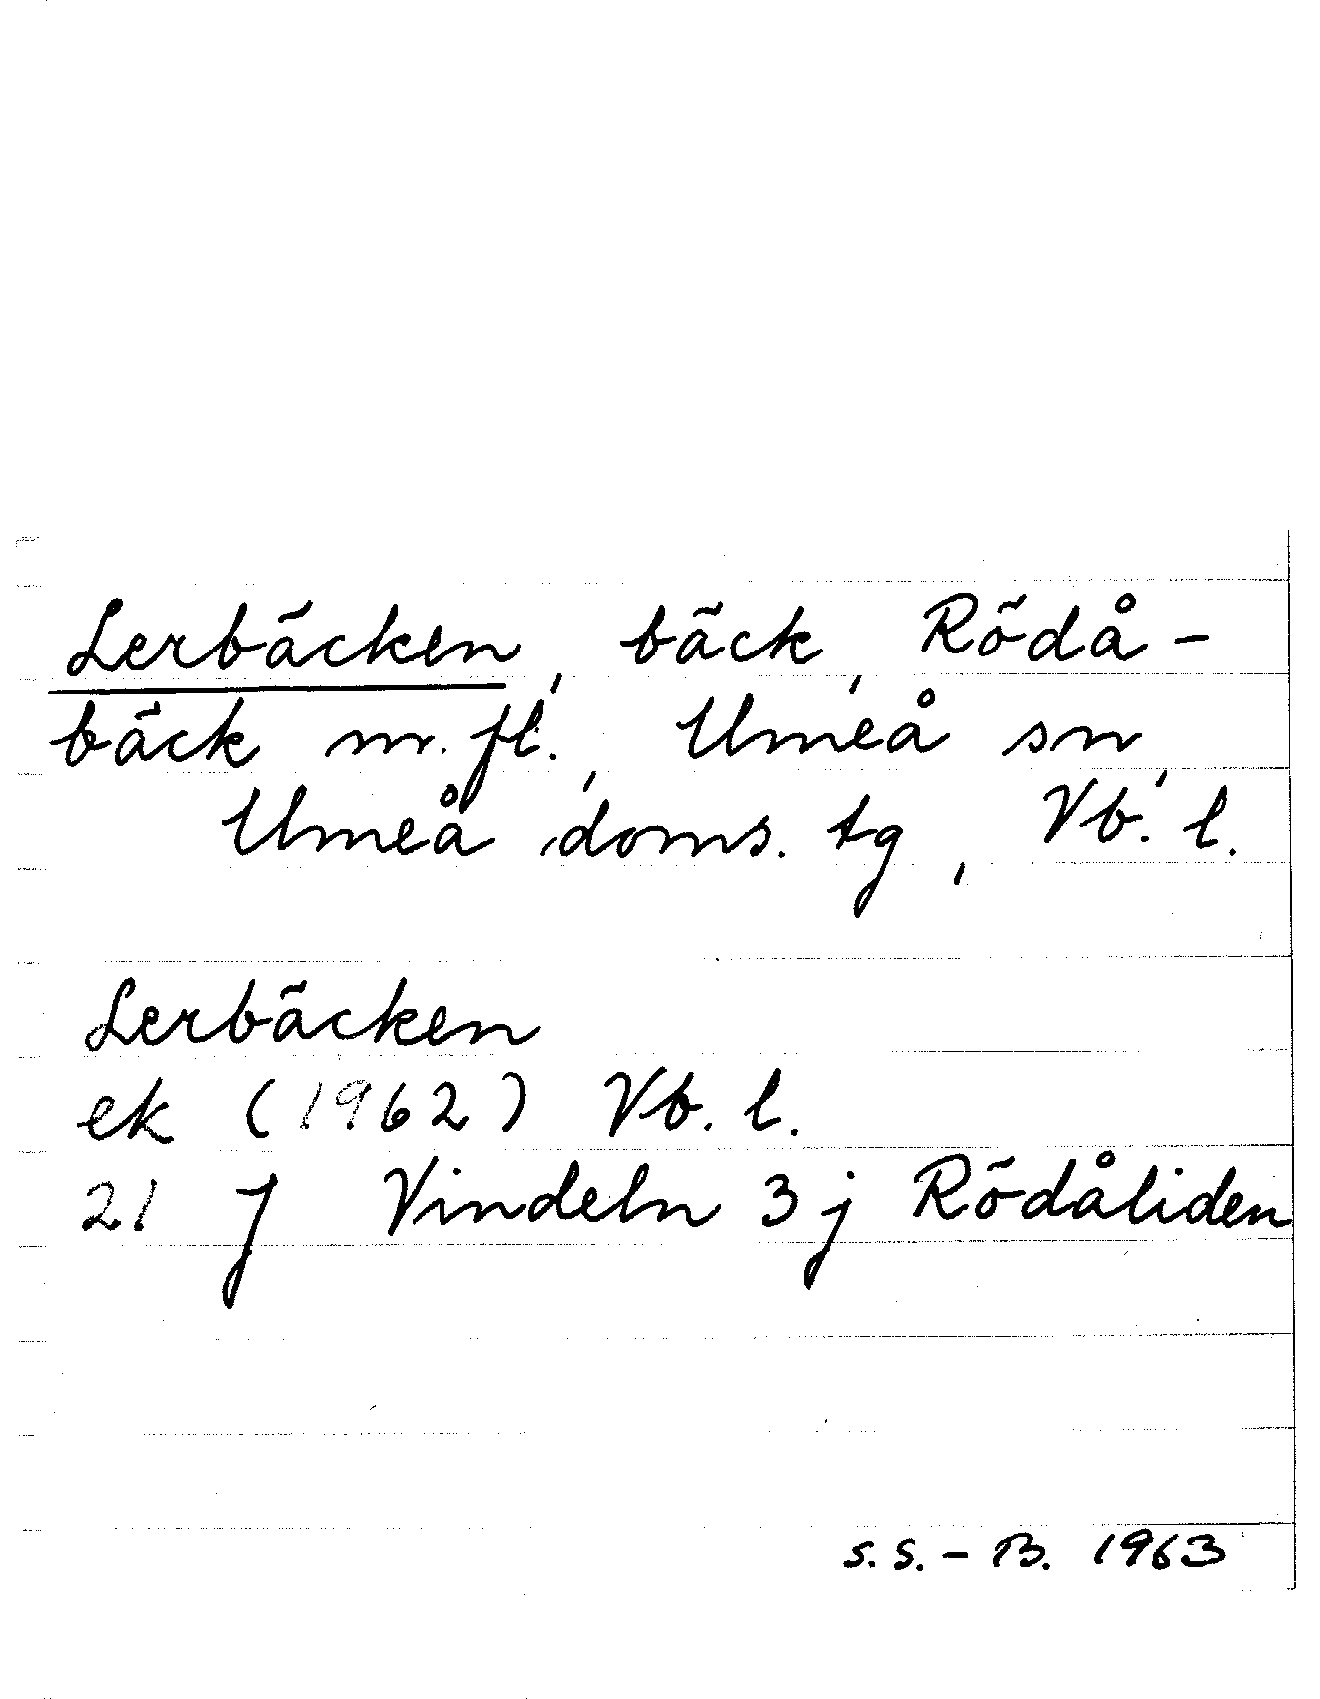 Lerbäcken, bäck, Rödå-
bäck m. fl., Umeå sn,
Umeå doms. tg, Vb. l.
Lerbäcken
ek (1962) Vb. l.
21 J Vindeln 3 j Rödåliden
S. S. - B. 1963